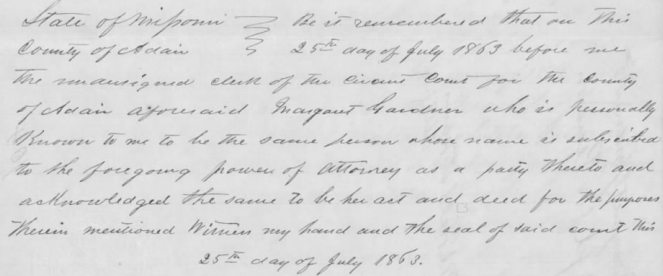 State of Missouri Be it remembered that on this
County of Adair 25th day of July 1863 before me
the undersigned clerk of the Circuit Court for the County
of Adair aforesaid Margaret Gardner who is personally
Known to me to be the same person whose name is subscribed
to the foregoing power of Attorney as a party thereto and
acknowledged the same to be her act and deed for the purposes
therein mentioned Witness my hand and the seal of said court this
25th day of July 1863.